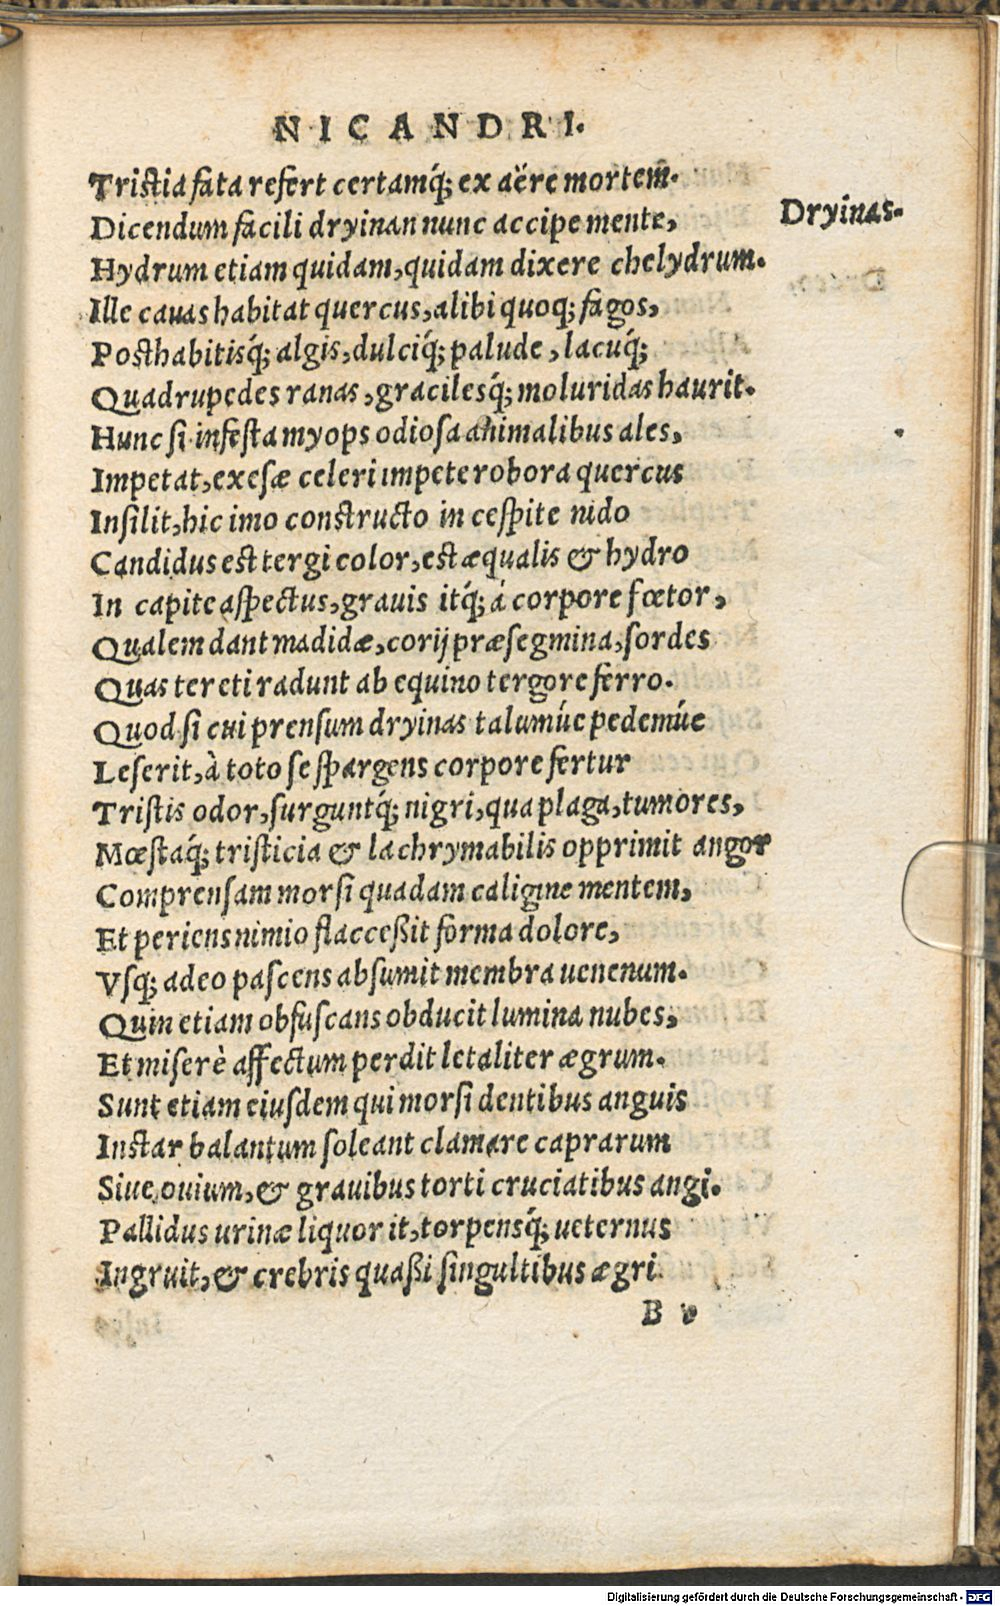 NICANDRI.
Tristia fata refert certamq́; ex aëre mortem.
Dicendum facili dryinan nunc accipe mente,
Dryinas.
Hydrum etiam quidam, quidam dixere chelydrum.
Ille cauas habitat quercus, alibi quoq; fagos,
Posthabitisq́; algis, dulciq́; palude, lacuq́;
Quadrupedes ranas, gracilesq́; moluridas haurit.
Hunc si infesta myops odiosa animalibus ales,
Impetat, exesæ celeri impete robora quercus
Insilit, hic imo constructo in cespite nido
Candidus est tergi color, est æqualis & hydro
In capite aspectus, grauis itq́; á corpore fœtor,
Qualem dant madidæ, corij præsegmina, sordes
Quas tereti radunt ab equino tergore ferro.
Quod si cui prensum dryinas talumúe pedemúe
Leserit, à toto se spargens corpore fertur
Tristis odor, surguntq́; nigri, qua plaga, tumores,
Mœstaq́; tristicia & lachrymabilis opprimit angor
Comprensam morsi quadam caligine mentem,
Et periens nimio flaccessit forma dolore,
Vsq; adeo pascens absumit membra uenenum.
Quin etiam obfuscans obducit lumina nubes,
Et miserè affectum perdit letaliter ægrum.
Sunt etiam eiusdem qui morsi dentibus anguis
Instar balantum soleant clamare caprarum
Siue ouium, & grauibus torti cruciatibus angi.
Pallidus urinæ liquor it, torpensq́; ueternus
Ingruit, & crebris quassi singultibus ægri
B v
Digitalisierung gefördert durch die Deutsche Forschungsgemeinschaft - DFG